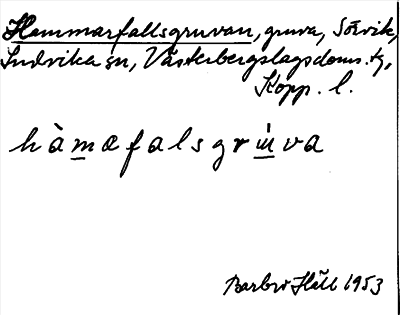 Hammarfallsgruvan, gruva, Sörvik,
Ludvika sn, Västerbergslagsdoms. tg,
Kopp. l.
hàmæfalsgrúva
Barbro Häll 1953